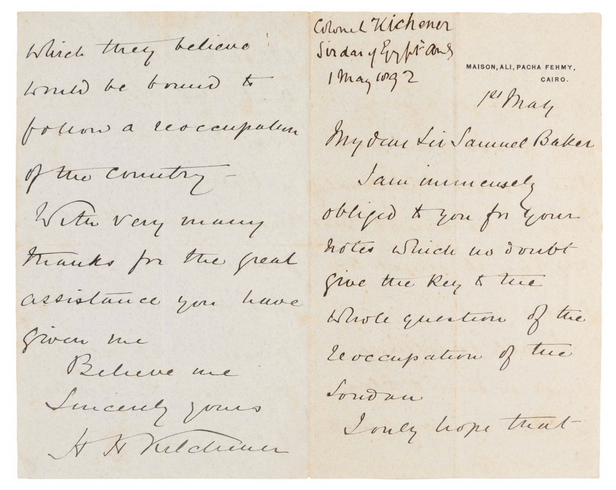 Colonel Kichener
Sirdar of Egypt
1 May 1892
MAISON, ALI, PACHA FEHMY,
CAIRO.
1st May
My dear Sir Samuel Baker
I am immensely
obliged to you for your
notes which no doubt
give the key to the
whole question of the
reoccupation of the
Soudan
I only hope that
which they believe
would be bound to
follow a reoccupation
of the country –
With very many
thanks for the great
assistance you have
given me
Believe me
Sincerely yours
H H Kitchener